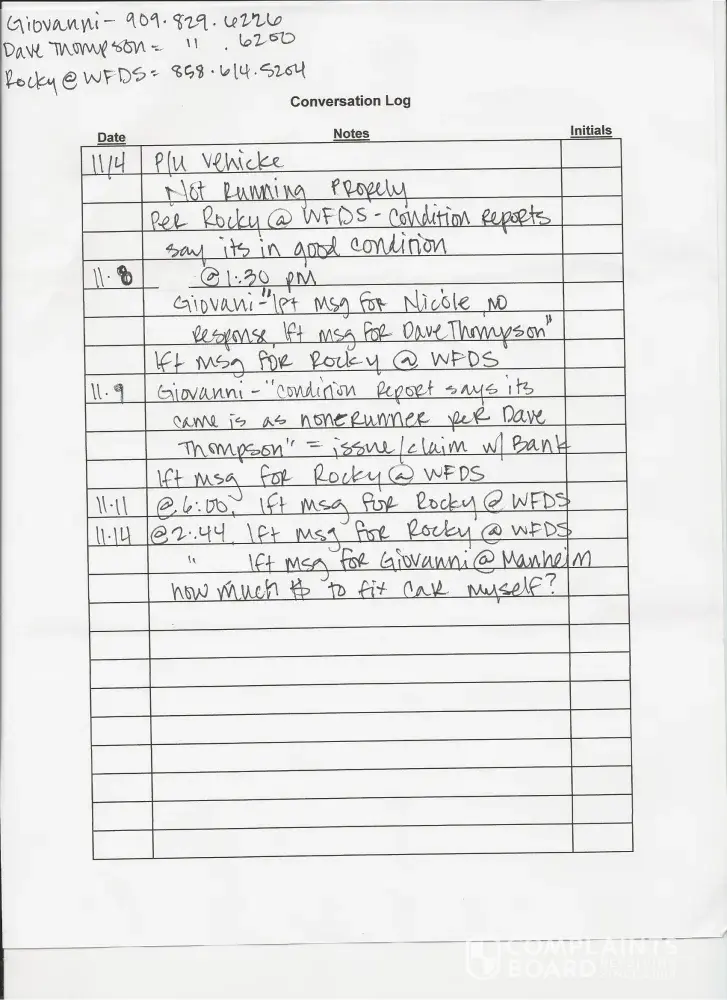 Giovanni - 909.829.6226
Dave Thompson = " . 6200
Rocky @ WFDS = 858.614.5204
Conversation Log
Date Notes Initials
11/4 P/U vehicke
Not Running Propely
Per Rocky @ WFDS - Condition Reports
say its in good condition
11.8 @ 1:30 pm
Giovani - "lft msg for Nicole, no
Response, lft msg for Dave Thompson"
lft msg for Rocky @ WFDS
11.9 Giovanni - "condition Report says its
came is as nonerunner per Dave
Thompson" = issue/claim w/ Bank
lft msg for Rocky @ WFDS
11.11 @ 6:00, lft msg for Rocky @ WFDS
11.14 @ 2:44 lft msg for Rocky @ WFDS
" lft msg for Giovanni @ Manheim
how much $ to fix car myself?
COMPLAINTS
BOARD